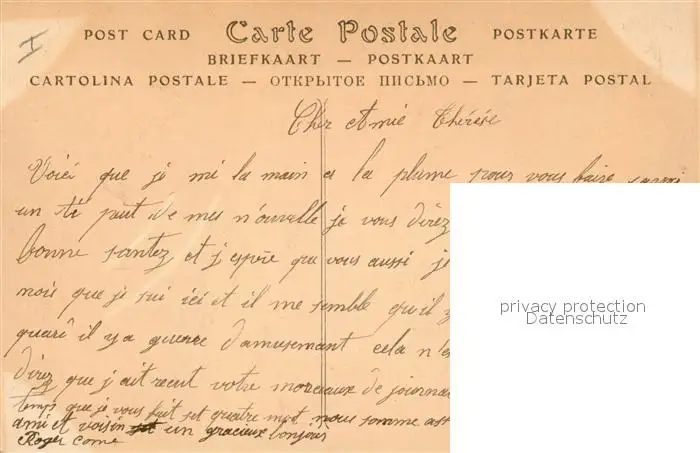 I
POST CARD Carte Postale POSTKARTE
BRIEFKAART — POSTKAART
CARTOLINA POSTALE — ОТКРЫТОЕ ПИСЬМО — TARJETA POSTAL
Cher Amie Thérése
Voici que je mi la main a la plume pour vous faire savoir
un ti peut de mes n'ouvelle je vous direz
bonne santez et j'espére que vous aussi je
mois que je sui ici et il me semble qu'il y
quare il y a guerre d'amusemant cela n'es
direz que j'ait recut votre morceaux de journa
temp que je vous fait set quatre mot nous somme
ami et voisin un gracieux bonjour
Roger Come
privacy protection
Datenschutz